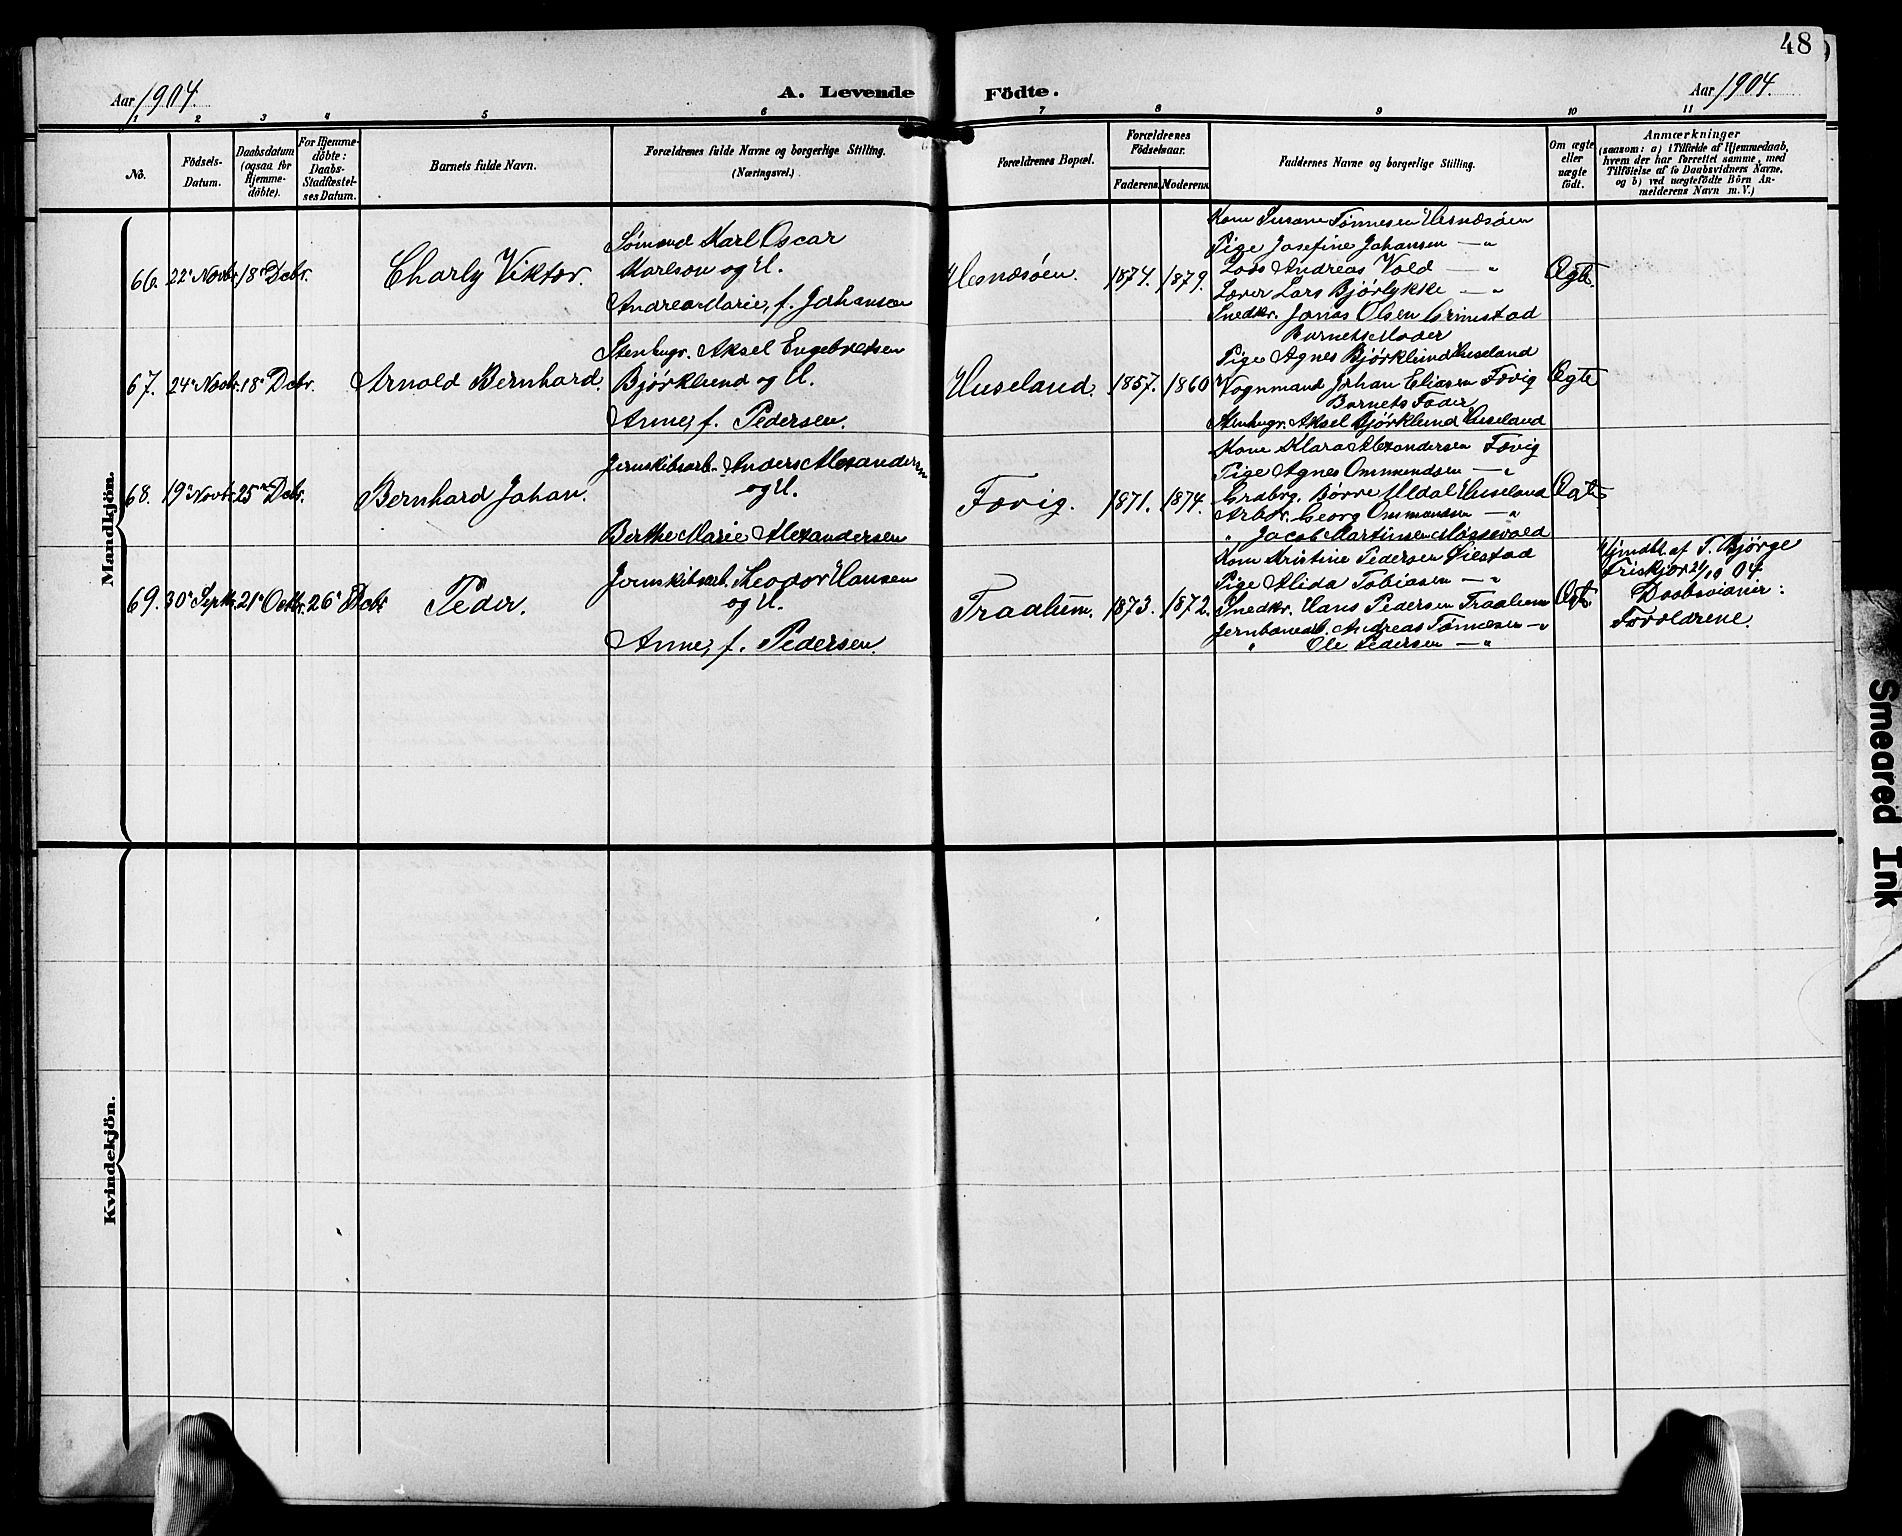 48
Aar 1904.
A. Levende Födte.
Aar 1904.
1 2 3 4 5 6 7 8 9 10 11
No.
Födsels-Datum.
Daabsdatum (ogsaa for Hjemme-döbte).
For Hjemme-döbte: Daabs-Stadfæstel-ses Datum.
Barnets fulde Navn.
Forældrenes fulde Navne og borgerlige Stilling.
(Næringsvei.)
Forældrenes Bopæl.
Forældrenes Födselsaar.
Faderens. Moderens.
Faddernes Navne og borgerlige Stilling.
Om ægte eller uægte födt.
Anmærkninger
(saasom: a) i Tilfælde af Hjemmedaab, hvem der har forrettet samme, med Tilföielse af to Daabsvidners Navne, og b) ved uægtefödte Börn An-melderens Navn m. V.)
Mandkjön.
66. 22' Novbr. 18' Decbr. Charly Viktor.
Sömand Karl Oscar
Karlson og H.
Andrea Marie, f. Johansen
Hesnæsöen. 1874. 1879.
Kone Susane Tönnesen Hesnæsöen
Pige Josefine Johansen — "
Lods Andreas Vold — "
Lærer Lars Bjørlykke — "
Snedkr. Jonas Olsen Grimstad
Ægte.
67. 24' Novbr. 18' Decbr. Arnold Bernhard.
Stenhugr. Aksel Engebretsen
Bjørklund og H.
Anne, f. Pedersen.
Huseland. 1857. 1860
Barnets Moder
Pige Agnes Bjørklund Huseland
Vognmand Johan Eliasen Fævig
Barnets Fader
Stenhugr. Aksel Bjørklund Huseland
Ægte
68. 19' Novbr. 25' Decbr. Bernhard Johan.
Jernskibsarb. Anders Alexandersen
og H.
Berthe Marie Alexandersen
Fævig. 1871. 1874.
Kone Klara Alexandersen Fævig
Pige Agnes Ommundsen — "
Grdbrg. Børre Uldal Huseland
Arbdr. Georg Ommundsen — "
" Jacob Martinsen Mossevold
Ægte
69. 30' Septbr. 21' Octbr. 26' Decbr Peder.
Jernskibsarb. Theodor Hansen
og H.
Anne, f. Pedersen.
Traalum. 1873. 1872.
Kone Kristine Pedersen Øiestad
Pige Alida Tobiasen — "
Snedkr. Hans Pedersen Traalum
Jernbanearb. Andreas Tönnesen — "
" Ole Pedersen — "
Ægte
Hjmdbt. af T. Bjørge
21/10 04
Daabsvidner:
Forældrene.
Kvindekjön.
Smeared Ink